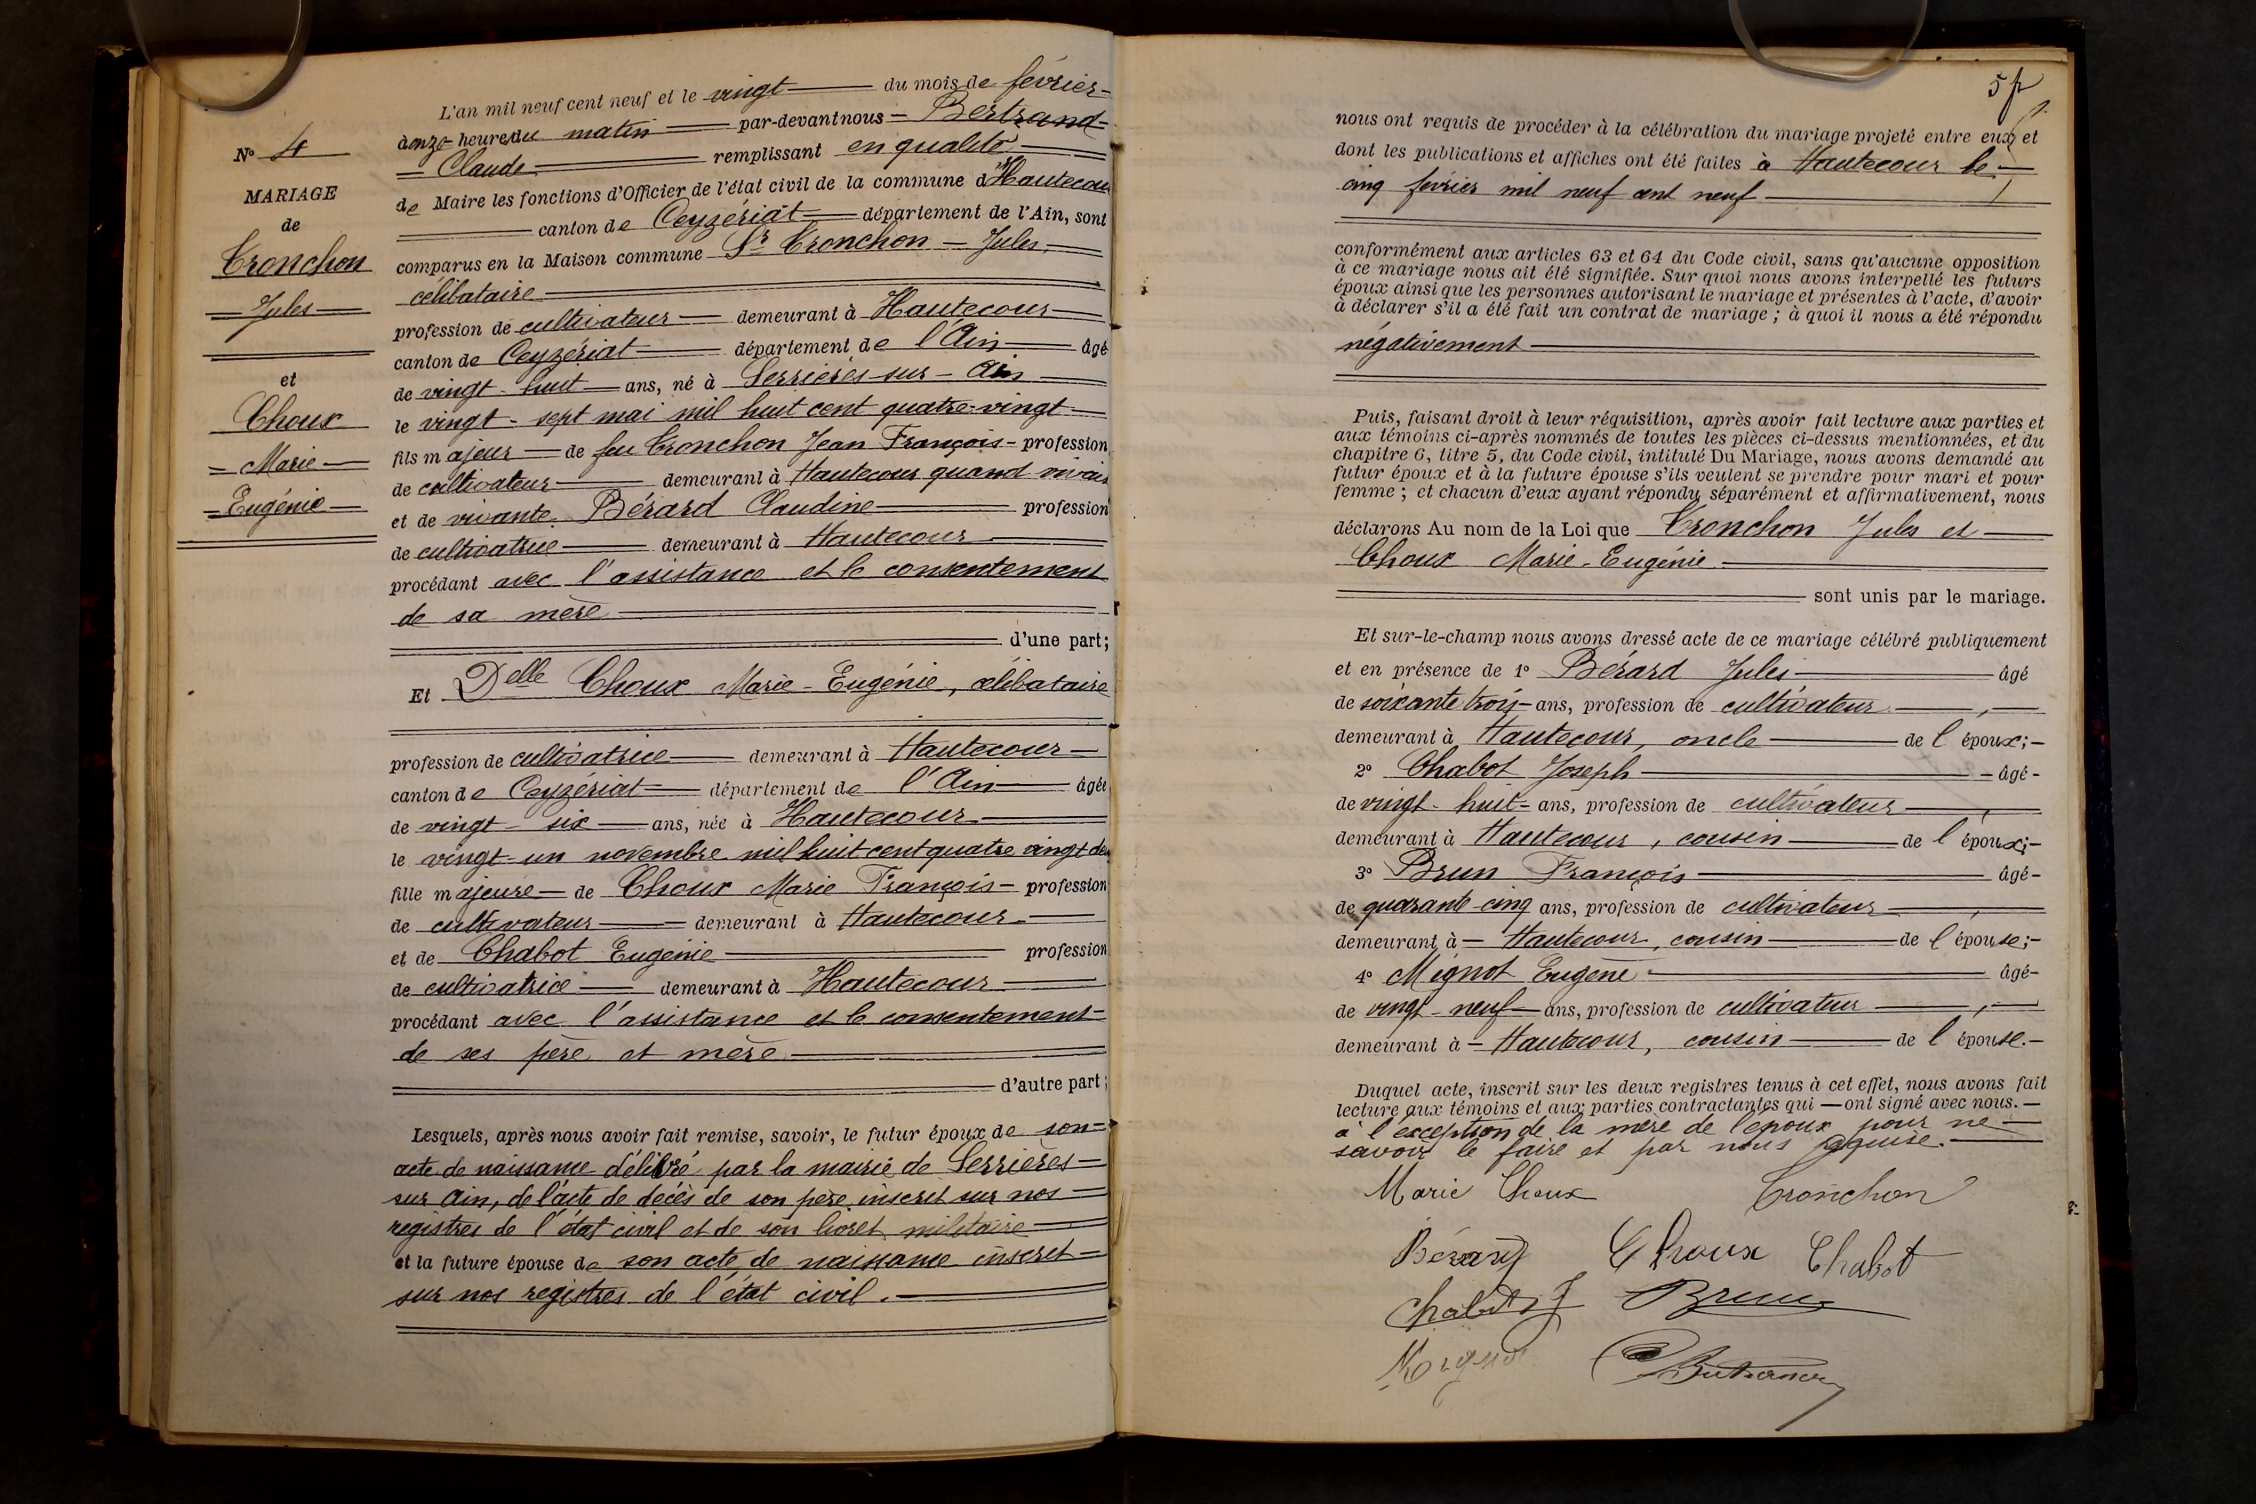 L'an mil neuf cent neuf et le vingt du mois de février
à onze heures du matin par-devant nous Bertrand
Claude remplissant en qualité
de Maire les fonctions d'Officier de l'état civil de la commune d'Hautecour
canton de Ceyzériat département de l'Ain, sont
comparus en la Maison commune Sr Tronchon Jules,
célibataire
profession de cultivateur demeurant à Hautecour
canton de Ceyzériat département de l'Ain âgé
de vingt-huit ans, né à Serrières-sur-Ain
le vingt-sept mai mil huit cent quatre-vingt
fils majeur de feu Tronchon Jean François profession
de cultivateur demeurant à Hautecour quand vivait
et de vivante Bérard Claudine profession
de cultivatrice demeurant à Hautecour
procédant avec l'assistance et le consentement
de sa mère
d'une part;
Et Delle Choux Marie-Eugénie, célibataire
profession de cultivatrice demeurant à Hautecour
canton de Ceyzériat département de l'Ain âgée
de vingt-six ans, née à Hautecour
le vingt-un novembre mil huit cent quatre vingt deux
fille majeure de Choux Marie François profession
de cultivateur demeurant à Hautecour
et de Chabot Eugénie profession
de cultivatrice demeurant à Hautecour
procédant avec l'assistance et le consentement
de ses père et mère
d'autre part;
Lesquels, après nous avoir fait remise, savoir, le futur époux de son
acte de naissance délivré par la mairie de Serrières
sur Ain, de l'acte de décès de son père inscrit sur nos
registres de l'état civil et de son livret militaire
et la future épouse de son acte de naissance inscrit
sur nos registres de l'état civil.
N° 4
MARIAGE
de
Tronchon
Jules
et
Choux
Marie
Eugénie
5
nous ont requis de procéder à la célébration du mariage projeté entre eux et
dont les publications et affiches ont été faites à Hautecour le
cinq février mil neuf cent neuf
conformément aux articles 63 et 64 du Code civil, sans qu'aucune opposition
à ce mariage nous ait été signifiée. Sur quoi nous avons interpellé les futurs
époux ainsi que les personnes autorisant le mariage et présentes à l'acte, d'avoir
à déclarer s'il a été fait un contrat de mariage; à quoi il nous a été répondu
négativement
Puis, faisant droit à leur réquisition, après avoir fait lecture aux parties et
aux témoins ci-après nommés de toutes les pièces ci-dessus mentionnées, et du
chapitre 6, titre 5, du Code civil, intitulé Du Mariage, nous avons demandé au
futur époux et à la future épouse s'ils veulent se prendre pour mari et pour
femme; et chacun d'eux ayant répondu séparément et affirmativement, nous
déclarons Au nom de la Loi que Tronchon Jules et
Choux Marie-Eugénie
sont unis par le mariage.
Et sur-le-champ nous avons dressé acte de ce mariage célébré publiquement
et en présence de 1° Bérard Jules âgé
de soixante trois ans, profession de cultivateur,
demeurant à Hautecour, oncle de l'époux;
2° Chabot Joseph âgé
de vingt-huit ans, profession de cultivateur,
demeurant à Hautecour, cousin de l'époux;
3° Brun François âgé
de quarante-cinq ans, profession de cultivateur,
demeurant à Hautecour, cousin de l'épouse;
4° Mignot Eugène âgé
de vingt-neuf ans, profession de cultivateur,
demeurant à Hautecour, cousin de l'épouse.
Duquel acte, inscrit sur les deux registres tenus à cet effet, nous avons fait
lecture aux témoins et aux parties contractantes qui ont signé avec nous.
à l'exception de la mère de l'époux pour ne
savoir le faire et par nous requise.
Marie Choux Tronchon
Bérard Choux Chabot
Chabot J Brun
Mignot Bertrand